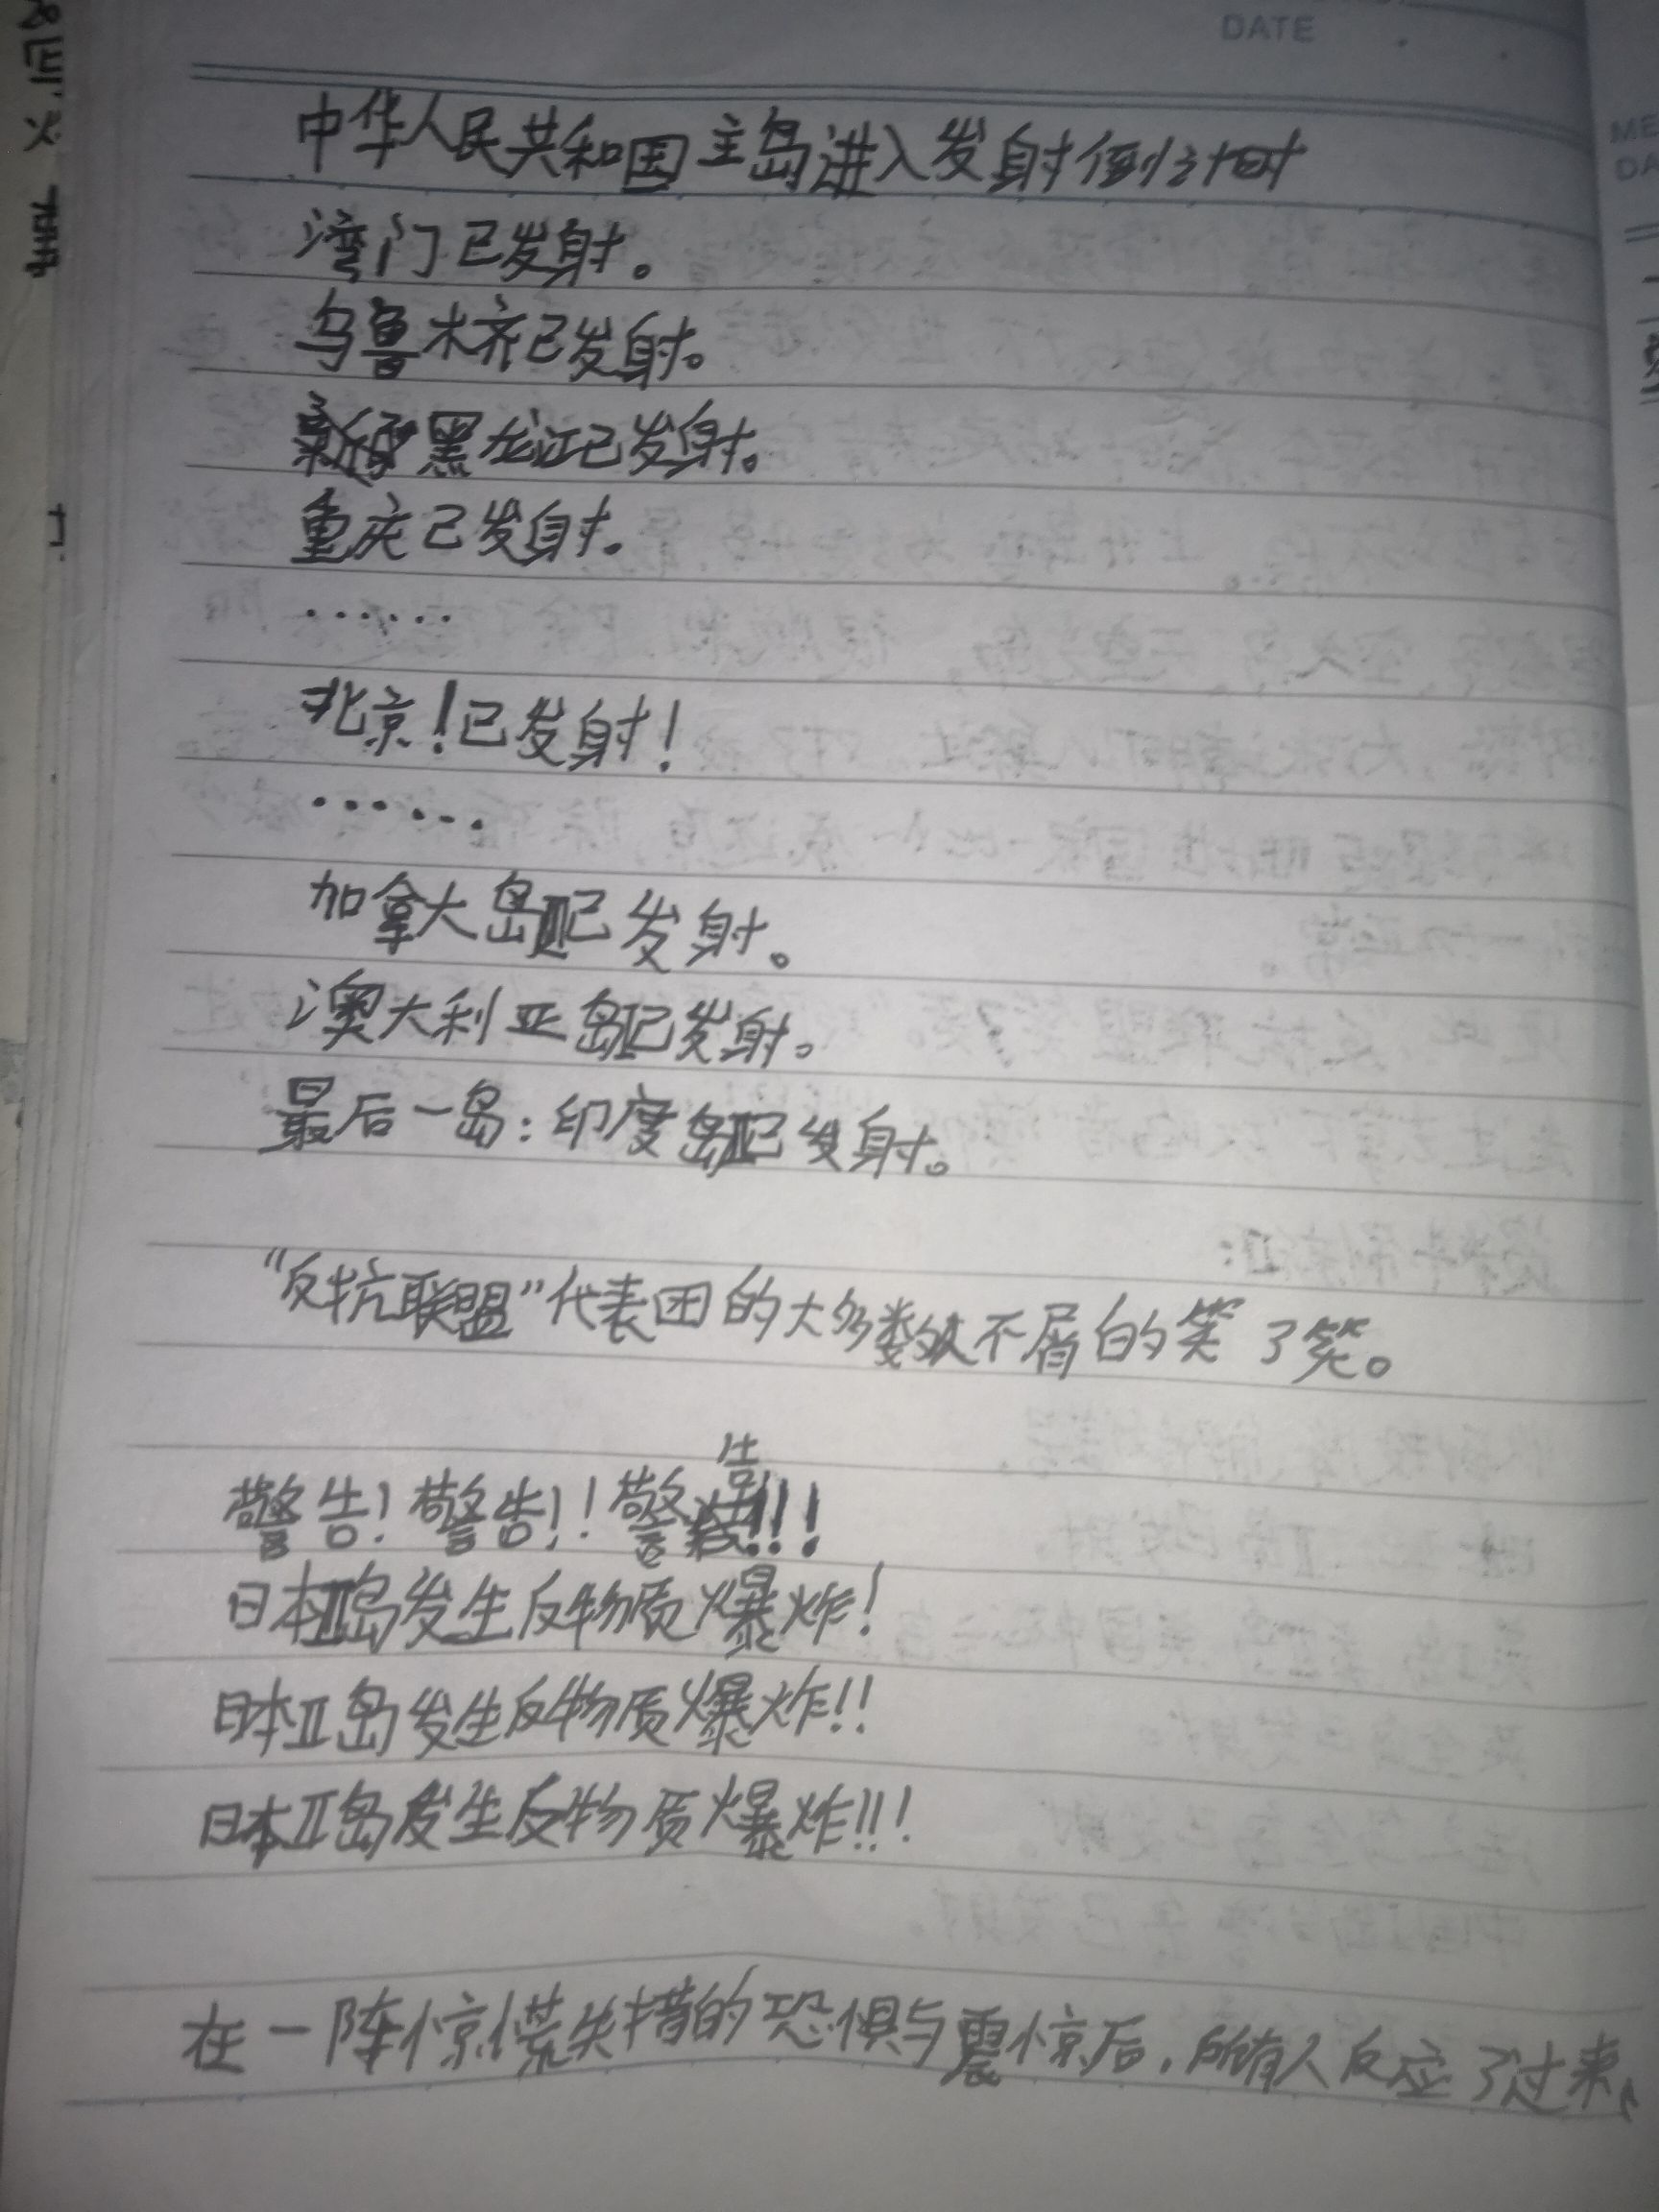 DATE
中华人民共和国主岛进入发射倒计时
湾门已发射。
乌鲁木齐已发射。
黑龙江已发射。
重庆已发射。
……
北京!已发射!
……
加拿大岛Ⅲ已发射。
澳大利亚岛Ⅲ已发射。
最后一岛:印度岛Ⅲ已发射。
“反抗联盟”代表团的大多数不屑的笑了笑。
警告!警告!!警告!!!
日本Ⅱ岛发生反物质爆炸!
日本Ⅱ岛发生反物质爆炸!!
日本Ⅱ岛发生反物质爆炸!!!
在一阵惊慌失措的恐惧与震惊后,所有人反应了过来,